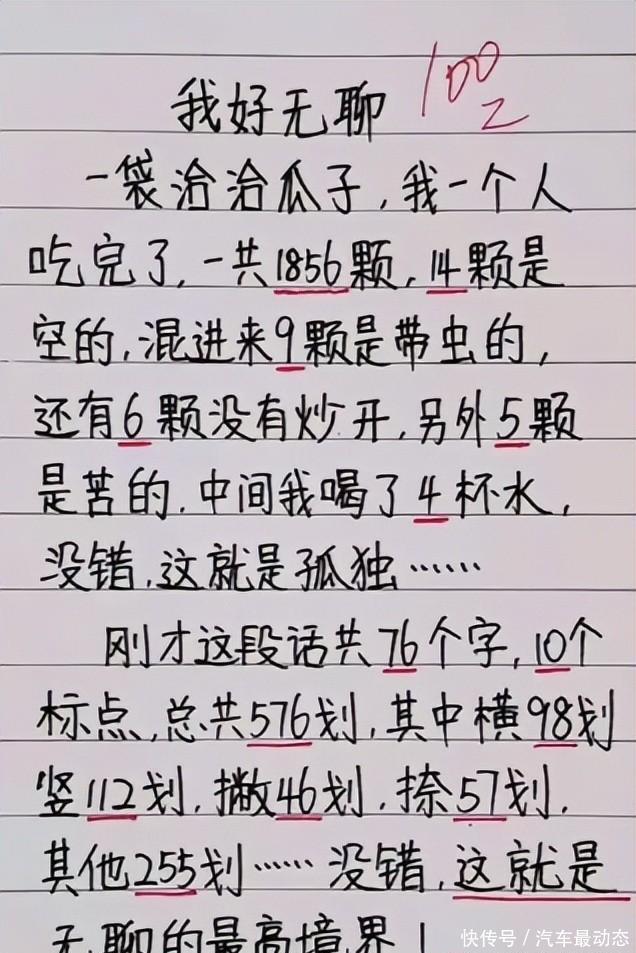 我好无聊
100
一袋洽洽瓜子，我一个人
吃完了，一共1856颗，14颗是
空的，混进来9颗是带虫的，
还有6颗没有炒开，另外5颗
是苦的，中间我喝了4杯水，
没错，这就是孤独……
刚才这段话共76个字，10个
标点，总共576划，其中横98划
竖112划，撇46划，捺57划，
其他255划……没错，这就是
无聊的最高境界！
快传号／汽车最动态